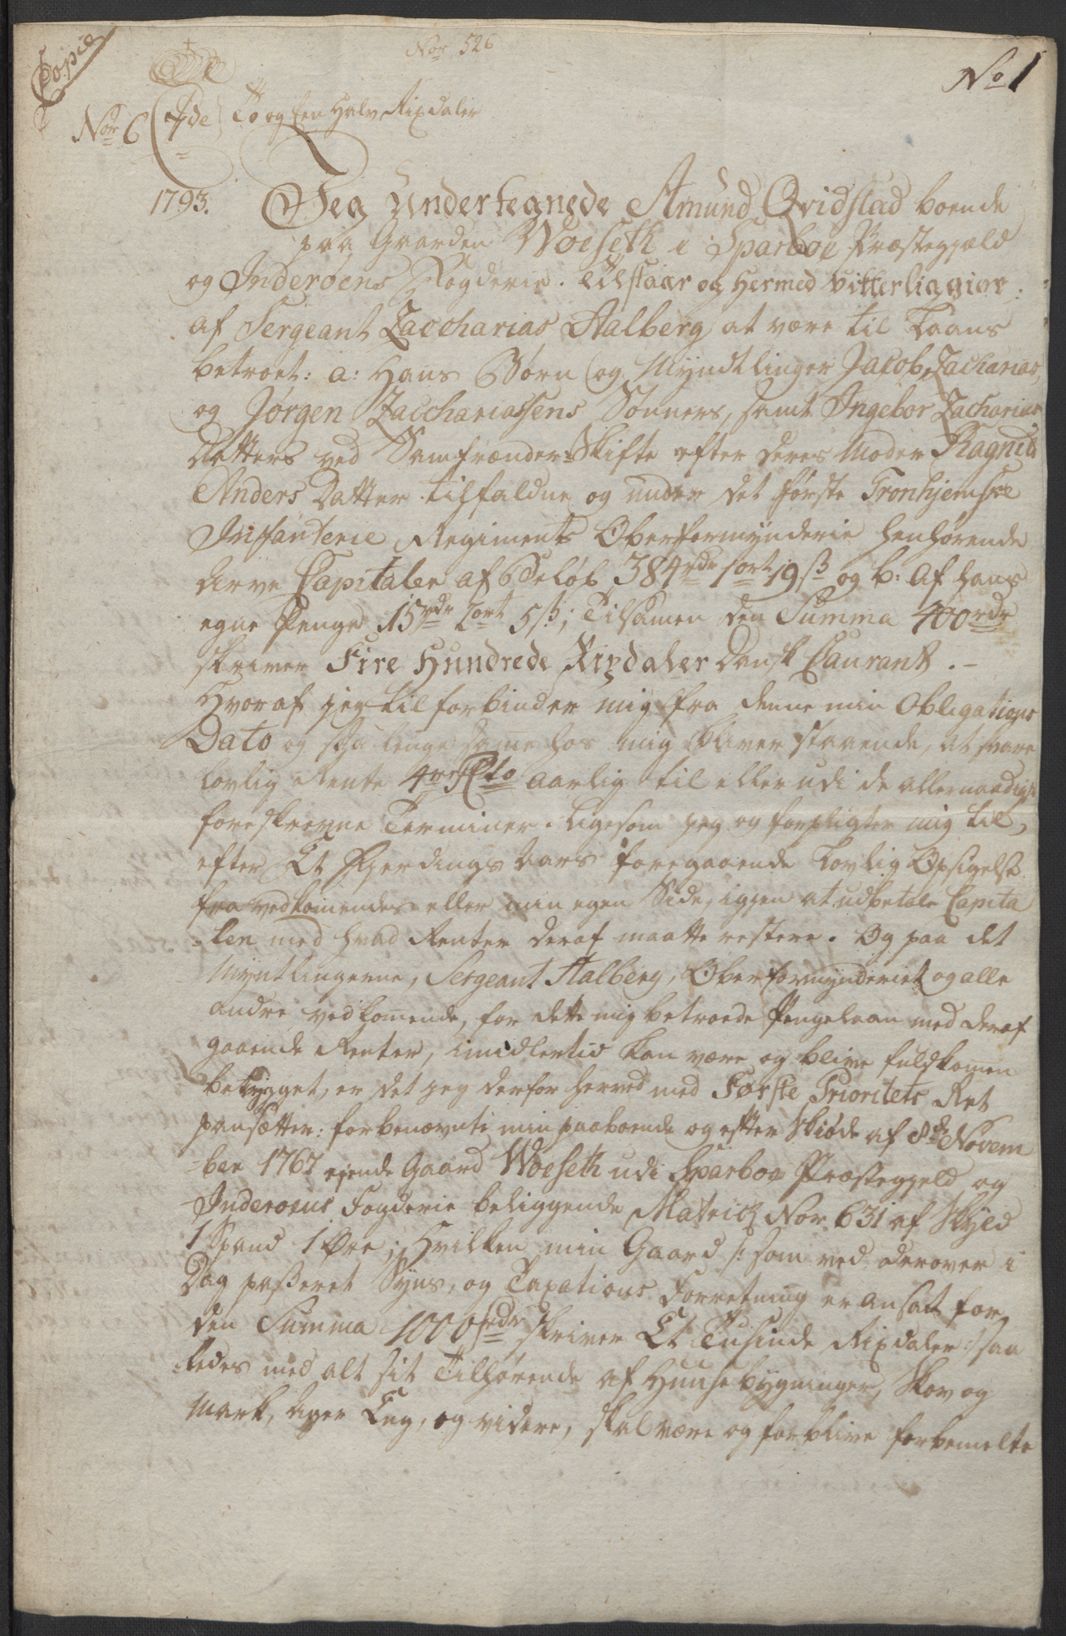 Copie
Nor 526
No 1
Nor 6 7de To og Een Halv Rixdaler
1793. Jeg Undertegnede Amund Qvidstad boende
paa Gaarden Woeseth i Sparboe Præstegjæld
og Inderøens Fogderie. tilstaar og Hermed vitterliggiør:
af Sergeant Zaccharias Aalberg at være til Laans
betroet: a: Hans Børn og Myndtlinger Jacob, Zacharias,
og Jørgen Zacchariassens Sønners, samt Ingebor Zacharias
Datters ved Samfrænder-Skifte efter deres Moder Ragnild
Anders Datter tilfaldne og under det første Tronhjemske
Infanterie Regiments Oberformynderie henhørende
Arve Capitaler af Beløb 384 rdr 1 ort 19 ß og b: af hans
egne Penge 15 rdr 2 ort 5 ß; Tilsamen den Summa 400 rdr
skriver Fire Hundrede Rixdaler Dansk Courant. –
Hvoraf jeg tilforbinder mig fra denne min Obligations
Dato og saa lenge samme hos mig bliver staaende, at svare
lovlig Rente 4re PCto aarlig til eller udi de allernaadigst
foreskrevne Terminer. Ligesom jeg og forpligter mig til,
efter Et Fjerdings Aars foregaaende Lovlig Opsigelse
fra vedkommendes eller min egen Side, igjen at udbetale Capita
len med hvad Renter deraf maatte restere. Og paa det
Myntlingerne, Sergeant Aalberg, Oberformynderiet og alle
andre vedkommende, for dette mig betroede Pengelaan med deraf
gaaende Renter, imidlertid kan være og blive fuldkommen
betrygget, er det jeg derfor herved med Første Prioritets Ret
pansætter: forbenævnte min paaboende og efter Skiøde af 8de Novem
ber 1767 ejende Gaard Woeseth udi Sparboe Præstegjeld og
Inderøens Fogderie beliggende Matric Nor. 631 af Skyld
1 Spand 1 Øre; Hvilken min Gaard /: som ved derover i
Dag passeret Syns, og Taxations Forretning er ansadt for
den Summa 1000 rdr skriver Et Tusinde Rixdaler :/ saa
ledes med alt sit Tilhørende af Huusebygninger, Skov og
Mark, Ager Eng, og videre, skal være og forblive forbemelte